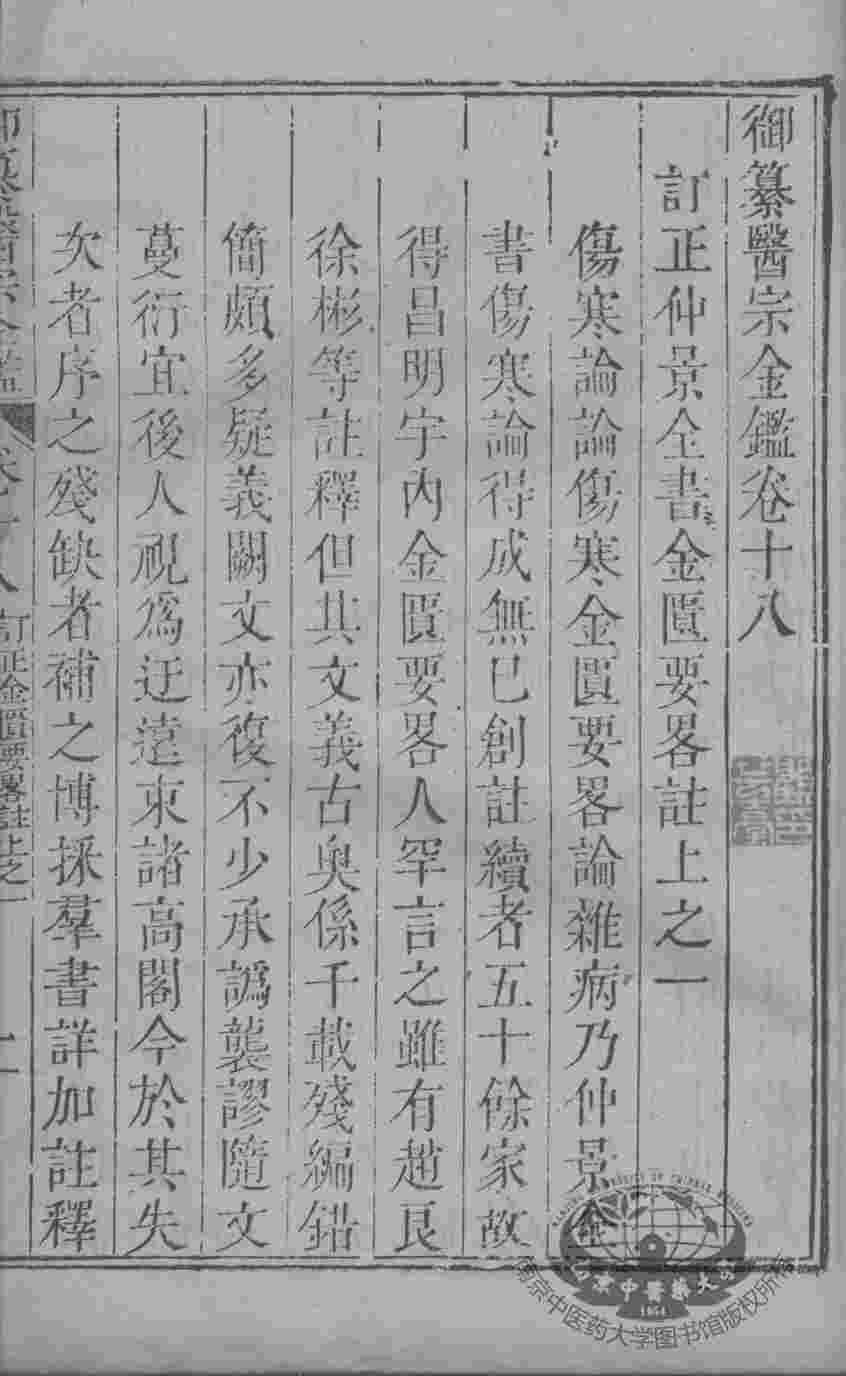 御纂醫宗金鑑卷十八
訂正仲景全書金匱要畧註上之一
傷寒論論傷寒金匱要畧論雜病乃仲景全
書傷寒論得成無已創註續者五十餘家故
得昌明宇內金匱要畧人罕言之雖有趙良
徐彬等註釋但其文義古奧係千載殘編錯
簡頗多疑義闕文亦復不少承譌襲謬隨文
蔓衍宜後人視爲迂遠束諸高閣今於其失
次者序之殘缺者補之博採羣書詳加註釋
御纂醫宗金鑑 卷十八 訂正金匱要畧註上之一 一
南京中医药大学图书馆版权所有